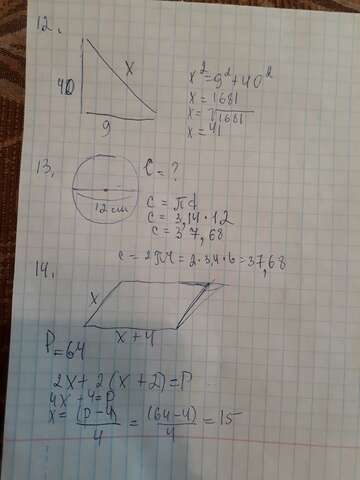 12.
40
x
9
x²=9²+40²
x = 1681
x = √1681
x = 41
13.
12 cm
C = ?
c = πd
c = 3,14·12
c = 37,68
c = 2πч = 2·3,4·6=37,68
14.
x
x+4
P=64
2x+2(x+2)=P
4x-4=P
x = (p-4)/4 = (64-4)/4 = 15